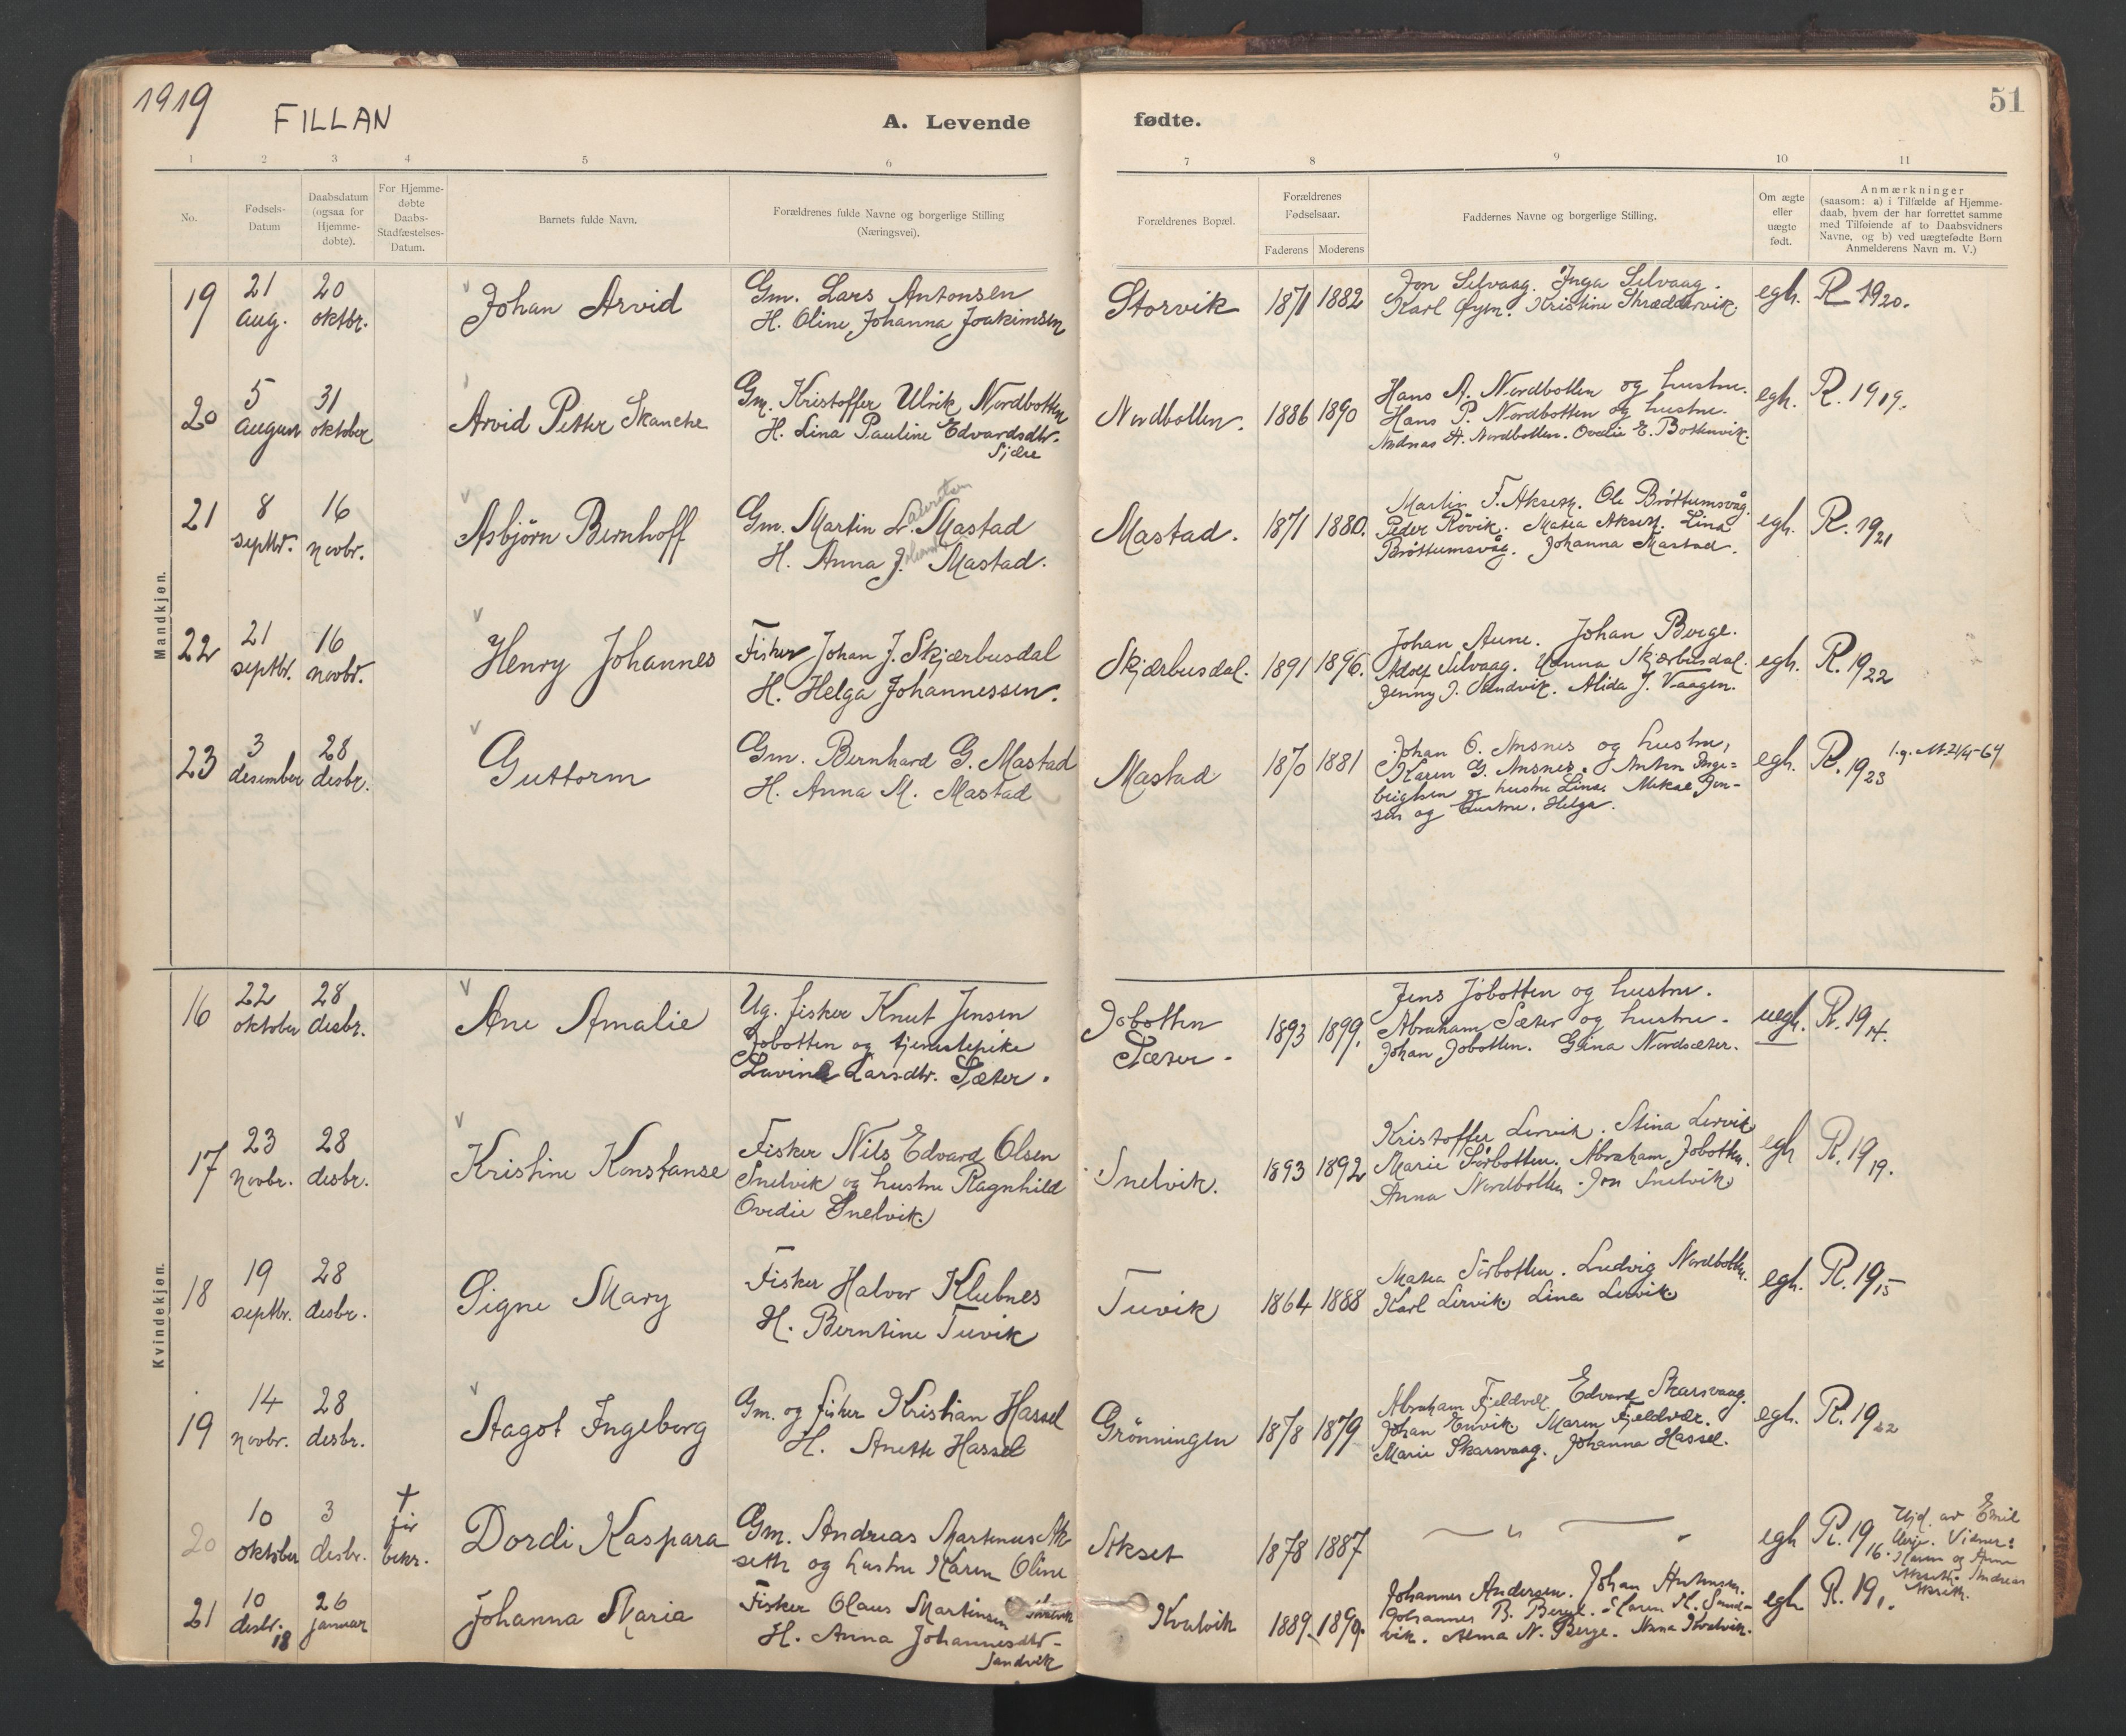 1919
FILLAN
A. Levende fødte.
51
1 2 3 4 5 6 7 8 9 10 11
No.
Fødsels-
Datum
Daabsdatum
(ogsaa for
Hjemme-
døbte).
For Hjemme-
døbte
Daabs-
Stadfæstelses-
Datum.
Barnets fulde Navn.
Forældrenes fulde Navne og borgerlige Stilling
(Næringsvei).
Forældrenes Bopæl.
Forældrenes
Fødselsaar.
Faderens Moderens
Faddernes Navne og borgerlige Stilling.
Om ægte
eller
uægte
født.
Anmærkninger
(saasom: a) i Tilfælde af Hjemme-
daab, hvem der har forrettet samme
med Tilføiende af to Daabsvidners
Navne, og b) ved uægtefødte Børn
Anmelderens Navn m. V.)
Mandkjøn.
19
21
aug.
20
oktbr.
Johan Arvid
Gm. Lars Antonsen
H. Oline Johanna Joakimsen
Storvik
1871 1882
Jon Selvaag. Inga Selvaag.
Karl Øyen. Kristine Skræddervik.
egh.
R 1920.
20
5
august
31
oktober
Arvid Petter Skanche
Gm. Kristoffer Ulrik Nordbotten
H. Lina Pauline Edvardsdtr.
Nordbotten.
1886 1890
Hans A. Nordbotten og hustru.
Hans P. Nordbotten og hustru.
Andreas A. Nordbotten. Ovedie E. Botnvik.
egh.
R. 1919.
21
8
septbr.
16
novbr.
Asbjörn Bernhoff
Gm. Martin L. Mastad
H. Anna J. Mastad.
Mastad.
1871 1880.
Martin F. Akseth. Ole Bröttumsvåg.
Peder Rövik. Masea Akseth. Lina
Bröttumsvåg. Johanna Mastad.
egh.
R. 1921
22
21
septbr.
16
novbr.
Henry Johannes
Fisker Johan J. Skjærbusdal
H. Helga Johannessen.
Skjærbusdal.
1891 1896.
Johan Aune. Johan Berge.
Adolf Selvaag. Skjærbusdal.
Jenny J. Sandvik. Alida J. Vaagen.
egh.
R. 1922
23
3
desember
28
desbr.
Guttorm
Gm. Bernhard G. Mastad
H. Anna M. Mastad
Mastad
1870 1881
Johan O. Ansnes og hustru,
Karen G. Ansnes. Anton Inge-
brigtsen og hustru Lina. Mikal Jen-
sen og hustru Helga.
egh.
R. 1923
Kvindekjøn.
16
22
oktober
28
desbr.
Ane Amalie
Ug. fisker Knut Jensen
Jobotten og tjenestepike
Lovine Larsdtr. Sæter.
Jobotten
Sæter.
1893 1899.
Jens Jobotten og hustru.
Abraham Sæter og hustru.
Johan Jobotten. Gina Nordsæter.
uegh.
R. 1914.
17
23
novbr.
28
desbr.
Kristine Konstanse
Fisker Nils Edvard Olsen
Snelvik og hustru Ragnhild
Ovedie Snelvik
Snelvik.
1893 1892
Kristoffer Lervik. Stina Lervik
Marie Sörbotten. Abraham Jobotten.
Anna Nordbotten. Jon Snelvik
egh
R. 1919.
18
19
septbr.
28
desbr.
Signe Mary
Fisker Halvor Klubnes
H. Berntine Tuvik
Tuvik
1864 1888
Masea Sörbotten. Ludvig Nordbotten.
Karl Lervik Lina Lervik
egh.
R. 1915
19
14
novbr.
28
desbr.
Aagot Ingeborg
Gm. og fisker Kristian Hassel
H. Anette Hassel
Grönningen
1878 1879
Abraham Fjeldvær. Edvard Skarsvaag.
Johan Tuvik Maren Fjeldvær.
Marie Skarsvaag. Johanna Hassel.
egh.
R. 1922
20
10
oktober
3
desbr.
†
før
bekr.
Dordi Kaspara
Gm. Andreas Martinus Ak-
seth og hustru Karen Oline
Akset
1878 1887
— " —
egh
R. 1916.
Hjd. av Emil
Berge. Vidner:
Karen og Anna
Akseth. Andreas
Akseth.
21
10
desbr.
18
26
januar
Johanna Maria
Fisker Olaus Martinsen Kvalvik
H. Anna Johannesdtr.
Sandvik
Kvalvik
1889. 1890.
Johannes Andersen. Johan
Johannes B. Berge. Maren M. Sand-
vik. Alma N. Berge. Anna Kvalvik.
egh
R. 191.